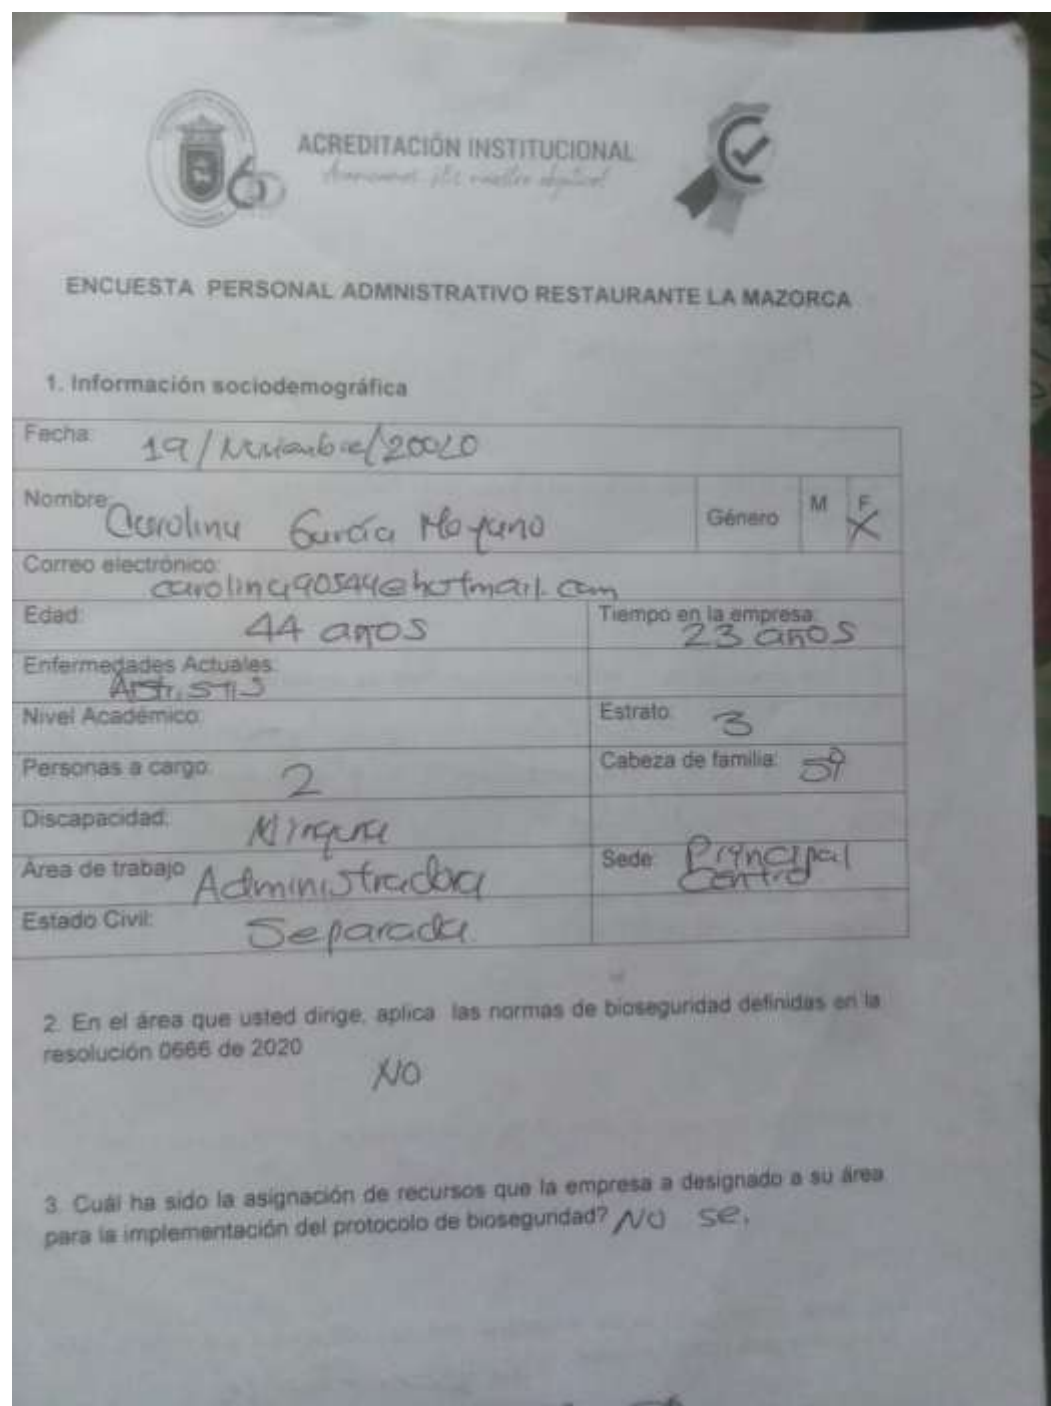 60
ACREDITACIÓN INSTITUCIONAL
ENCUESTA PERSONAL ADMNISTRATIVO RESTAURANTE LA MAZORCA
1. Información sociodemográfica
Fecha: 19/Noviembre/20020
Nombre: Carolina García Moyano Género M F X
Correo electrónico: carolina90544@hotmail.com
Edad: 44 años Tiempo en la empresa: 23 años
Enfermedades Actuales: Artristis
Nivel Académico: Estrato: 3
Personas a cargo: 2 Cabeza de familia: si
Discapacidad: Ninguna
Area de trabajo Administradora Sede: Principal
Centro
Estado Civil: Separada
2. En el área que usted dirige, aplica las normas de bioseguridad definidas en la
resolución 0666 de 2020
NO
3. Cuál ha sido la asignación de recursos que la empresa a designado a su área
para la implementación del protocolo de bioseguridad? No se.